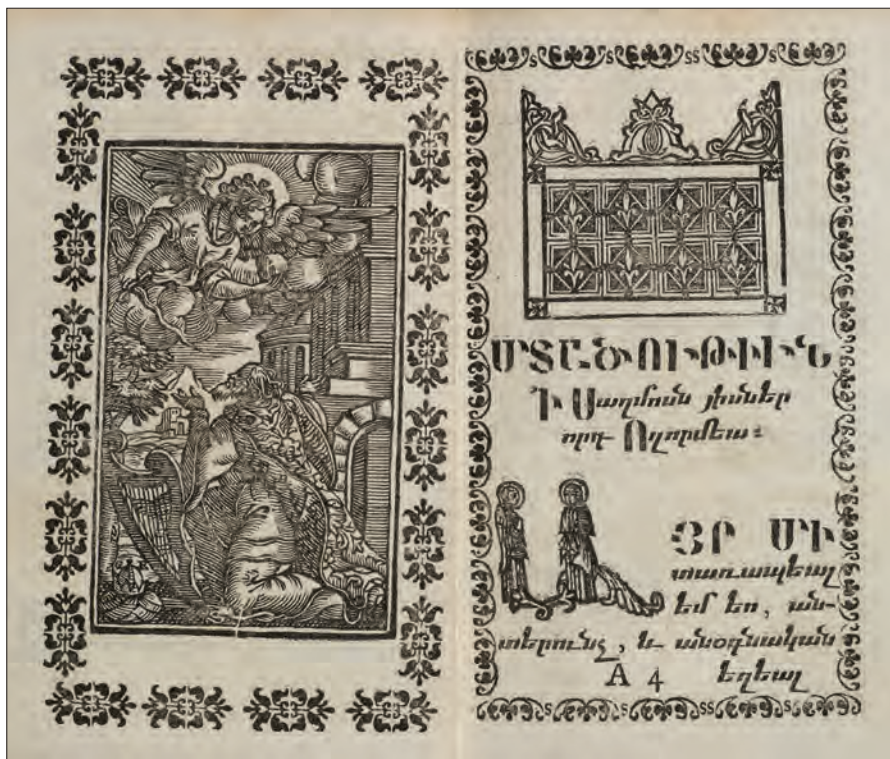 ՄՏԱԾՈՒԹԻՒՆ
Ի Սաղմոսն յիսներ
որդ Ողորմեա։
ԱՅՐ ՄԻ
տառապեալ
եմ ես, ան-
տերունչ, և անօգնական
A 4 եղեալ